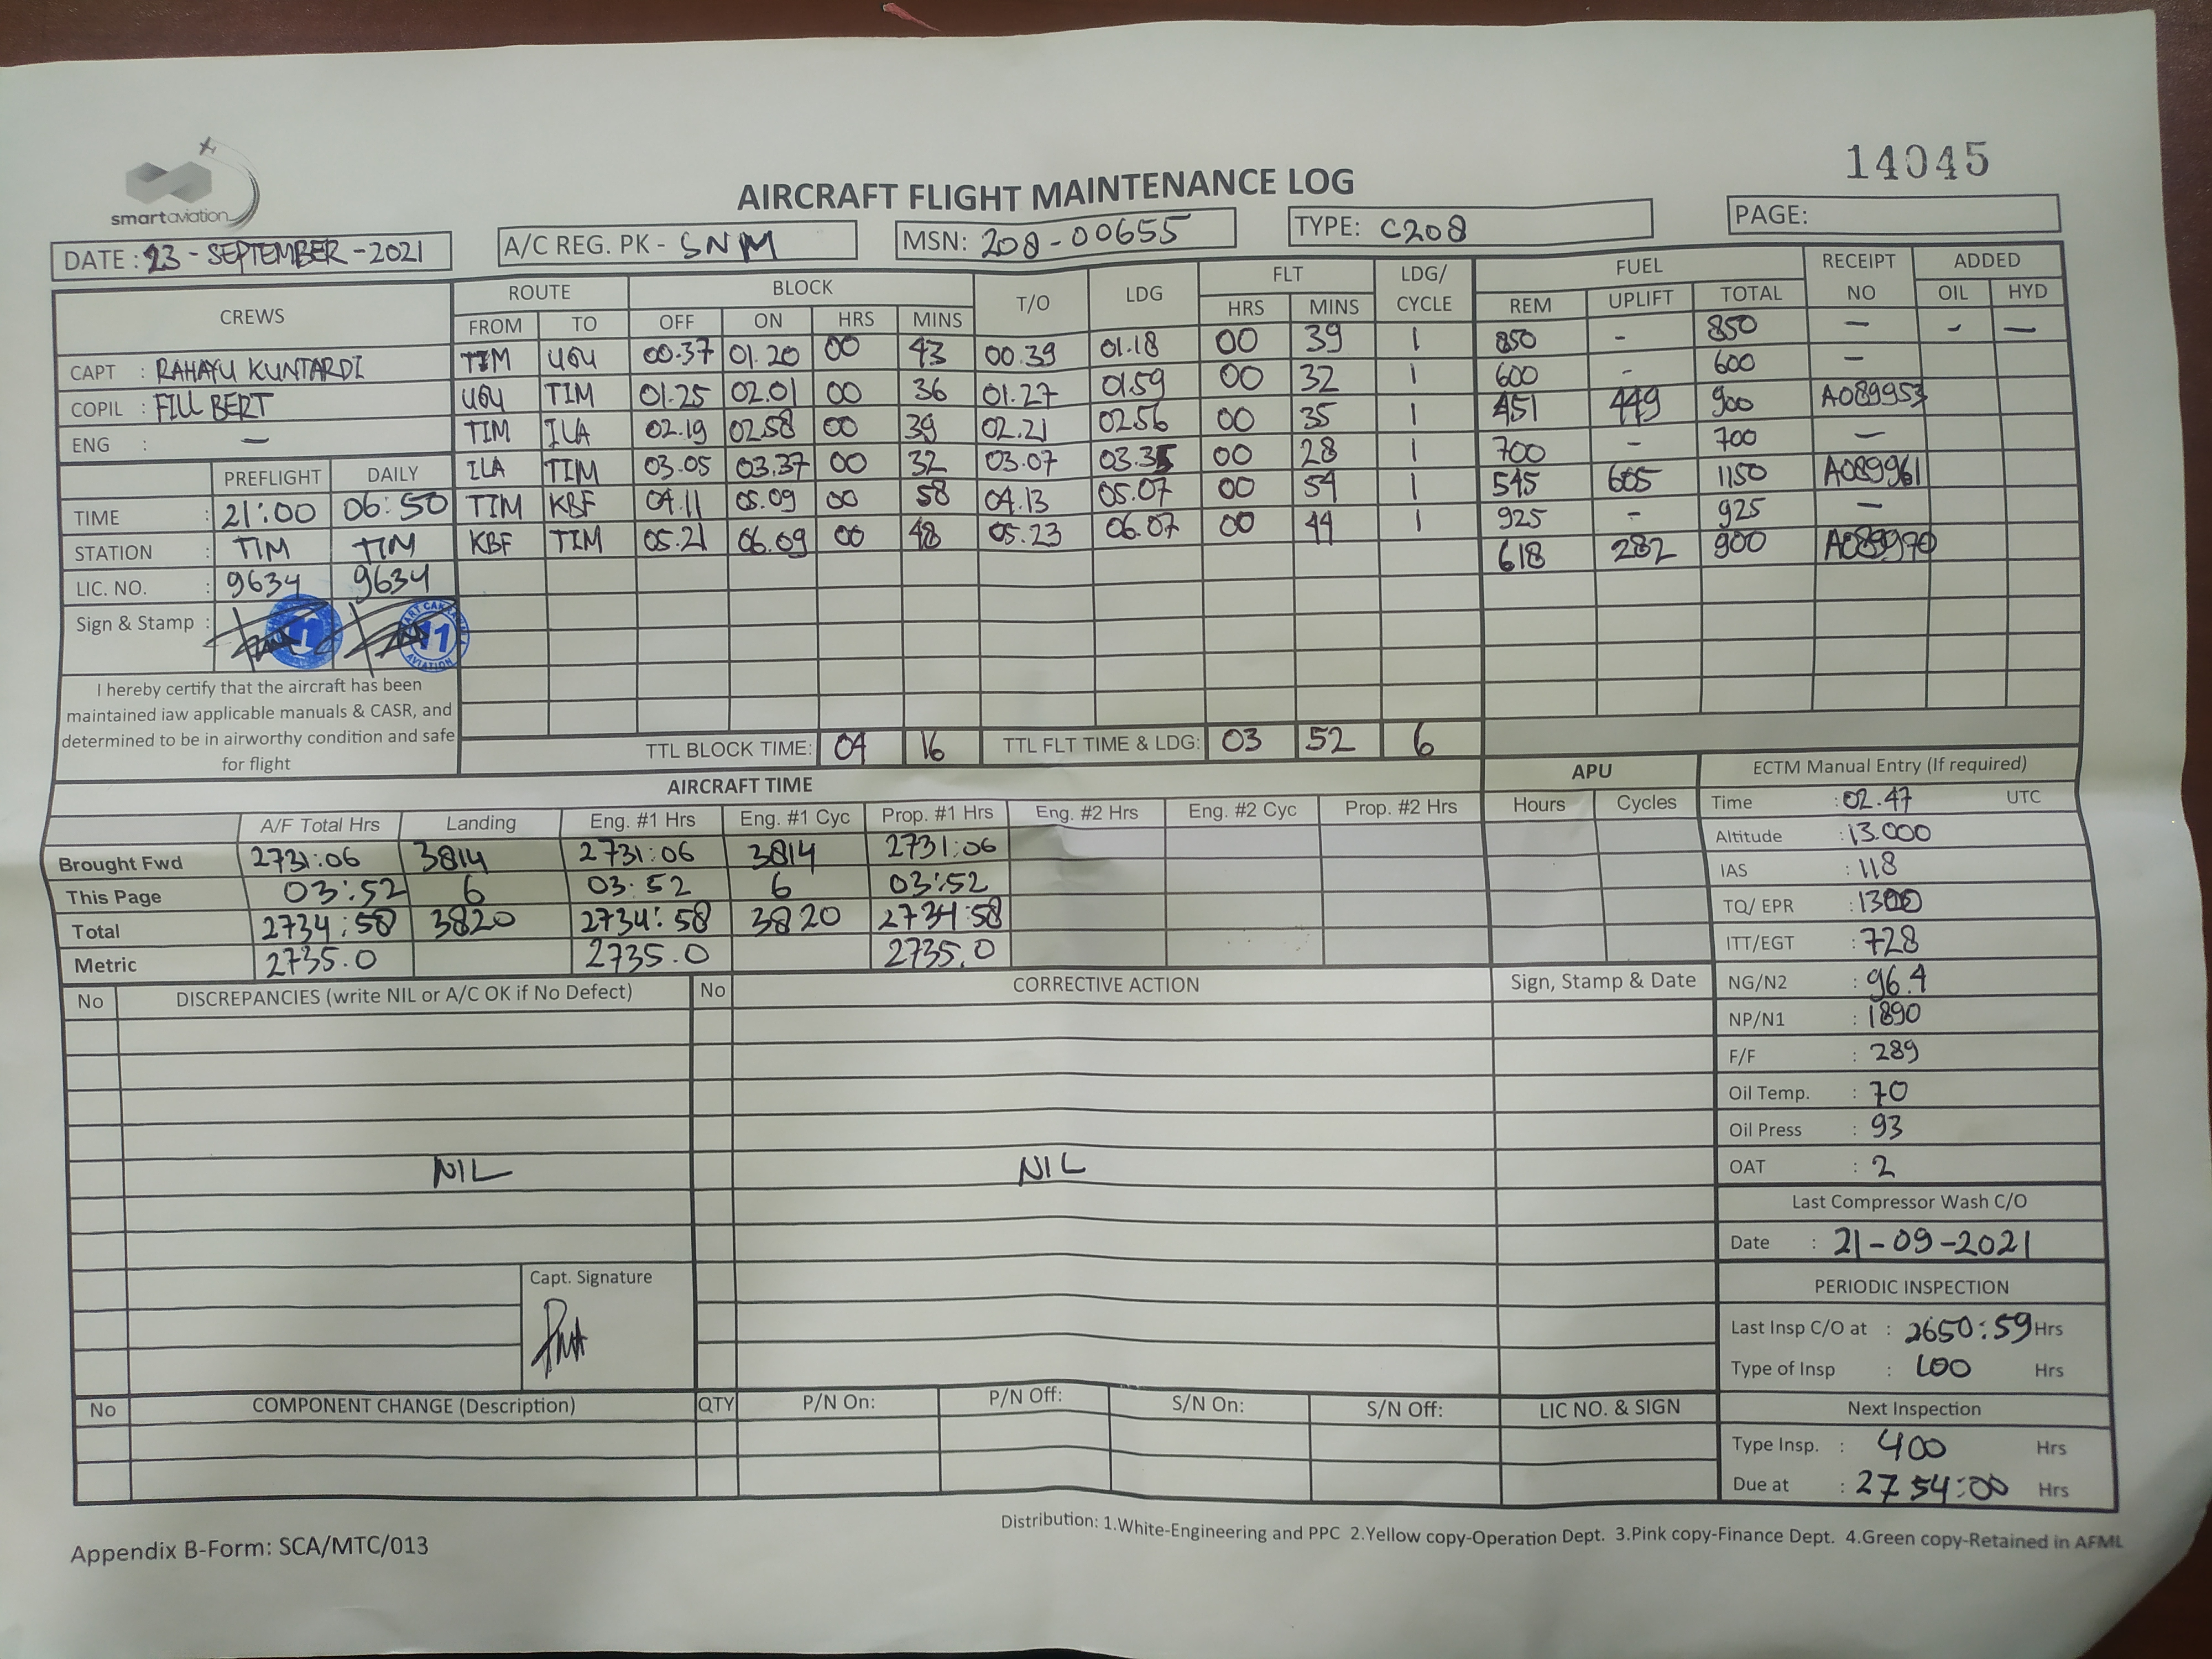 14045
smartaviation
AIRCRAFT FLIGHT MAINTENANCE LOG
DATE : 23 - SEPTEMBER - 2021 A/C REG. PK - SNM MSN: 208-00655 TYPE: C208 PAGE:
CREWS ROUTE BLOCK T/O LDG FLT LDG/ CYCLE FUEL RECEIPT NO ADDED
FROM TO OFF ON HRS MINS HRS MINS REM UPLIFT TOTAL OIL HYD
CAPT : RAHAYU KUNTARDI
COPIL : FILL BERT
ENG : —
TIM UGU 00.37 01.20 00 43 00.39 01.18 00 39 1 850 - 850 — - —
UGU TIM 01.25 02.01 00 36 01.27 01.59 00 32 1 600 - 600 —
TIM ILA 02.19 02.58 00 39 02.21 02.56 00 35 1 451 449 900 A089953
ILA TIM 03.05 03.37 00 32 03.07 03.35 00 28 1 700 - 700 —
TIM KBF 04.11 05.09 00 58 04.13 05.07 00 54 1 545 605 1150 A089961
KBF TIM 05.21 06.09 00 48 05.23 06.07 00 44 1 925 - 925 —
618 282 900 A089970
PREFLIGHT DAILY
TIME : 21:00 06:50
STATION : TIM TIM
LIC. NO. : 9634 9634
Sign & Stamp :
11
AVIATION
I hereby certify that the aircraft has been
maintained iaw applicable manuals & CASR, and
determined to be in airworthy condition and safe
for flight
TTL BLOCK TIME: 04 16 TTL FLT TIME & LDG: 03 52 6
AIRCRAFT TIME APU
A/F Total Hrs Landing Eng. #1 Hrs Eng. #1 Cyc Prop. #1 Hrs Eng. #2 Hrs Eng. #2 Cyc Prop. #2 Hrs Hours Cycles
Brought Fwd 2731:06 3814 2731:06 3814 2731:06
This Page 03:52 6 03:52 6 03:52
Total 2734:58 3820 2734:58 3820 2734:58
Metric 2735.0 2735.0 2735.0
ECTM Manual Entry (If required)
Time : 02.47 UTC
Altitude : 13.000
IAS : 118
TQ/ EPR : 1300
ITT/EGT : 728
NG/N2 : 96.4
NP/N1 : 1890
F/F : 289
Oil Temp. : 70
Oil Press : 93
OAT : 2
Last Compressor Wash C/O
Date : 21-09-2021
PERIODIC INSPECTION
Last Insp C/O at : 2650:59 Hrs
Type of Insp : 100 Hrs
Next Inspection
Type Insp. : 400 Hrs
Due at : 2754:00 Hrs
No DISCREPANCIES (write NIL or A/C OK if No Defect) No CORRECTIVE ACTION Sign, Stamp & Date
NIL NIL
Capt. Signature
No COMPONENT CHANGE (Description) QTY P/N On: P/N Off: S/N On: S/N Off: LIC NO. & SIGN
Distribution: 1.White-Engineering and PPC 2.Yellow copy-Operation Dept. 3.Pink copy-Finance Dept. 4.Green copy-Retained in AFML
Appendix B-Form: SCA/MTC/013